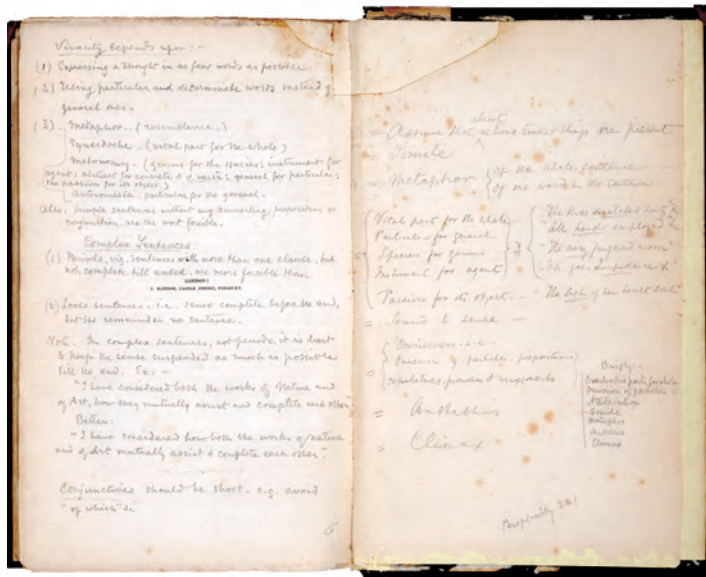 Vivacity depends upon:-
(1) Expressing a thought in as few words as possible
(2) Using particular and determinate words instead of
general ones.
(3). Metaphor.. (resemblance.)
Synecdoche. (vital part for the whole)
Metonomy. (genus for the species; instrument for
agent; abstract for concrete & v. versâ; general for particular;
the passion for its object)
Antonomasia, particular for the general.
Also: Simple sentences without any connecting, prepositions or
conjunction, are the most forcible.
Complex Sentences.
(1) Periods, viz, sentences with more than one clause, but
not complete till ended, are more forcible than
LONDON:
CASTLE STREET, FINSBURY.
(2) Loose sentences. i.e. sense complete before the end,
but the remainder no sentence.
Note. In complex sentences, not periods, it is best
to keep the sense suspended as much as possible
till the end. Ex: -
"I have considered both the works of Nature and
of Art, how they mutually assist and complete each other"
Better:
"I have considered how both the works of nature
and of Art mutually assist & complete each other".
Conjunctives should be short. e.g. avoid
"of which" &c
= Assume that actions times & things are present
Simile
= Metaphor { of the whole sentence
of one word in the sentence
Vital part for the whole
Particular for general
Species for genus
Instrument for agent
"All hands employed &c
"The rosy fingered morn"
Passion for its object. - "The sigh of her secret soul"
= Sound & sense -
Conciseness - i.e -
Omission of particles, prepositions
copulatives, pronouns &
= Antithesis
= Climax
Briefly -
Omission of particles
Alliteration
Simile
Metaphor
Climax
Perspicuity 221